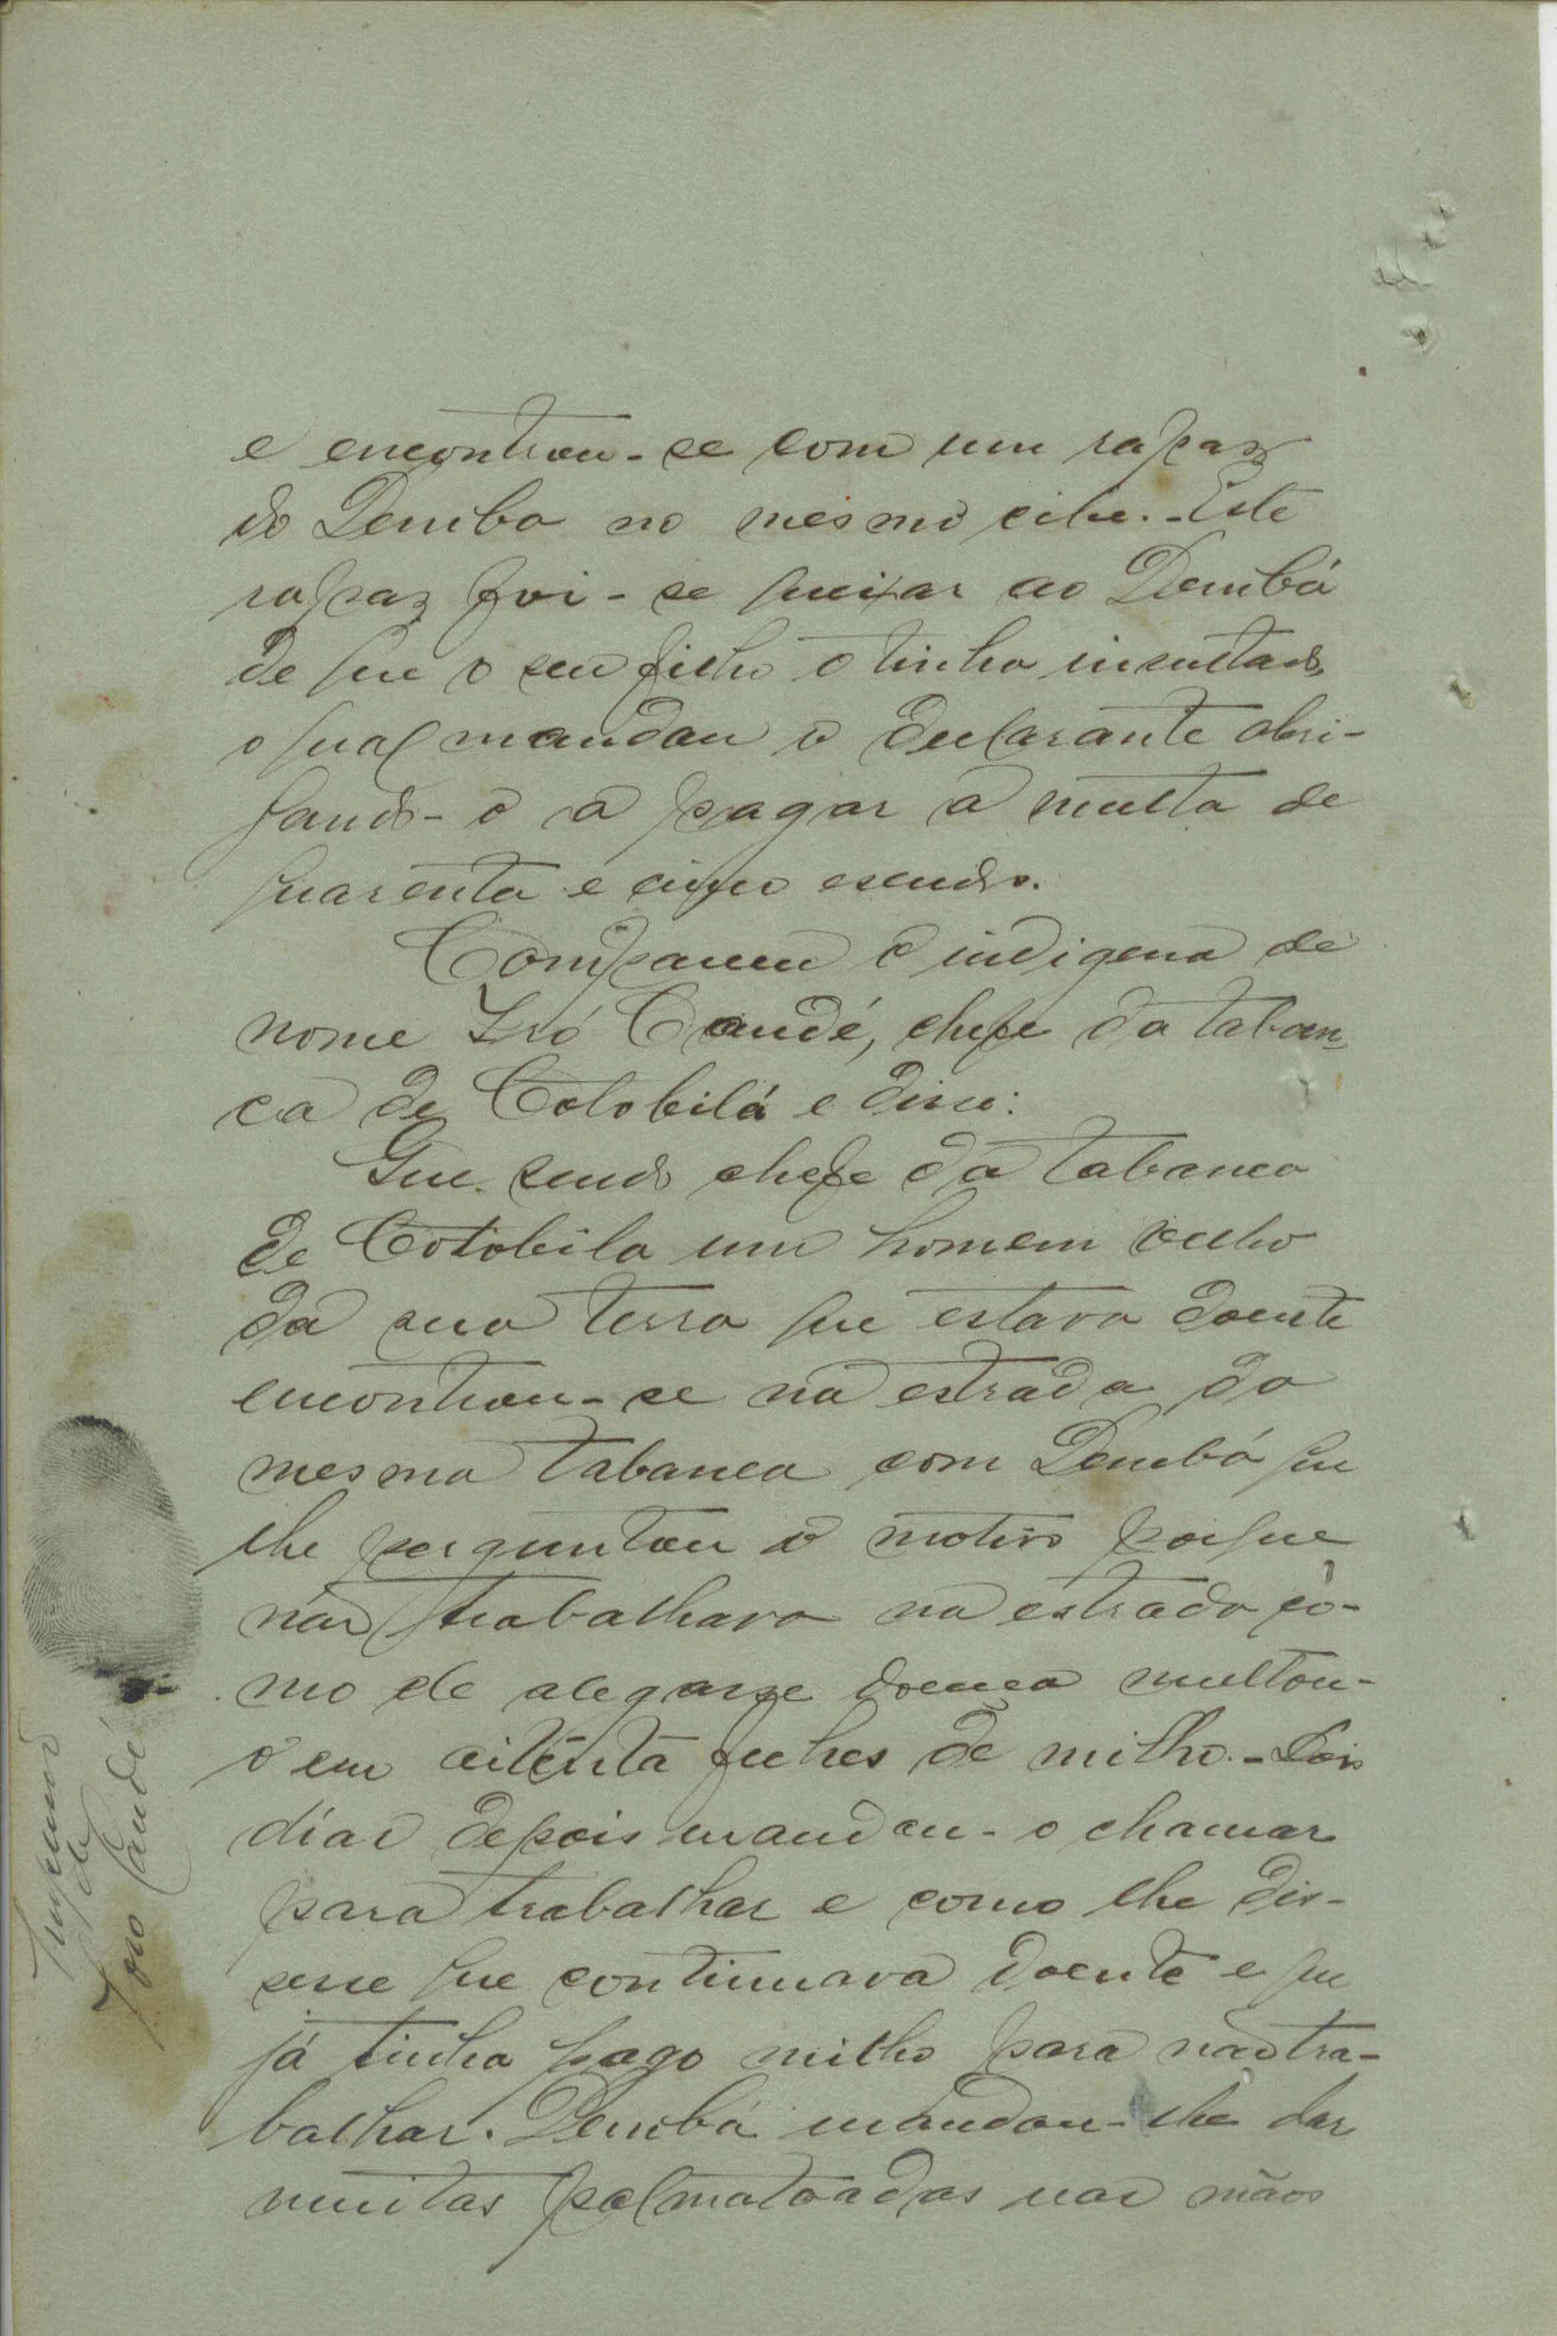 e encontrou-se com um rapaz
do Demba no mesmo cibe. - Este
rapaz foi-se queixar ao Dembá
de que o seu filho o tinha insultado,
o qual mandou o declarante obri-
gando-o a pagar a multa de
quarenta e cinco escudos.
Compareceu o indigena de
nome Iró Candé, chefe da taban-
ca de Cotobilá e disse:
Que sendo chefe da tabanca
de Cotobila um homem velho
da sua terra que estava doente
encontrou-se na estrada da
mesma tabanca com Dembá que
lhe perguntou o motivo porque
não trabalhava na estrada co-
mo ele alegasse doença multou-
o em oitenta fulhes de milho. - Dois
dias depois mandou-o chamar
para trabalhar e como lhe dis-
sesse que continuava doente e que
já tinha pago milho para não tra-
balhar. Dembá mandou-lhe dar
muitas palmatoadas nas mãos
de
Iro Candé